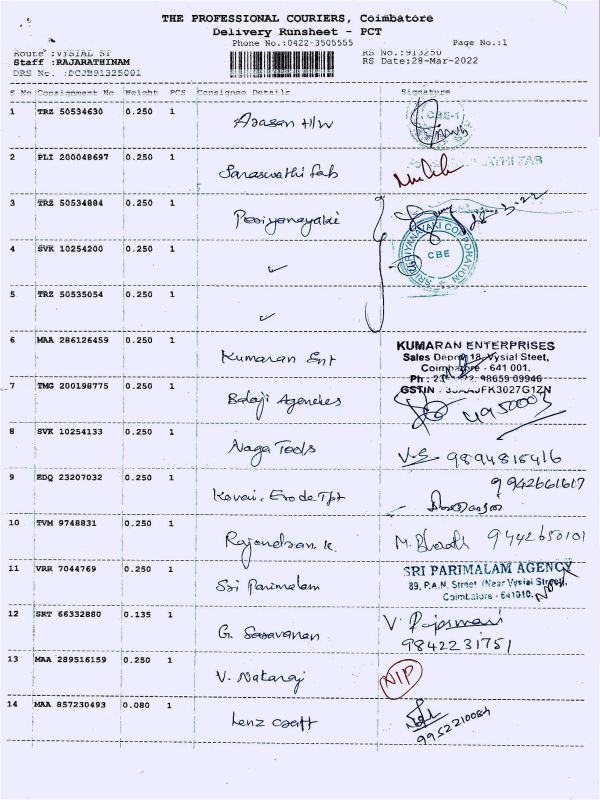 THE PROFESSIONAL COURIERS, Coimbatore
Delivery Runsheet - PCT
Phone No.:0422-3505555
Page No.:1
Route :VYSIAL ST
RS No.:913250
Staff :RAJARATHINAM
RS Date:28-Mar-2022
DRS No. :DCJB91325001
S No Consignment No Weight PCS Consignee Details Signature
1 TRZ 50534630 0.250 1 Arasan H/W
CBE-1
2 PLI 200048697 0.250 1 Saraswathi Fab
3 TRZ 50534884 0.250 1 Periyanayaki
4 SVK 10254200 0.250 1 ✓
SRI PERIYANAYAKI CORPORATION
CBE
5 TRZ 50535054 0.250 1 ✓
6 MAA 286126459 0.250 1 Kumaran Ent
KUMARAN ENTERPRISES
Sales Depot 18, Vysial Steet,
Coimbatore - 641 001.
7 TMG 200198775 0.250 1 Balaji Agencies
8 SVK 10254133 0.250 1 Naga Tools
V.S 9894816416
9 EDQ 23207032 0.250 1 Kovai. Erode Tpt
9942661617
10 TVM 9748831 0.250 1 Rajendran. K.
M. Bharath 9442650101
11 VRR 7044769 0.250 1 Sri Parimalam
SRI PARIMALAM AGENCY
89, P.A.N. Street (Near Vysial Street),
Coimbatore - 641010.
12 SRT 66332880 0.135 1 G. Saravanan
V Rajeswari
9842231751
13 MAA 289516159 0.250 1 V. Nataraj
NIP
14 MAA 857230493 0.080 1 Lenz craft
9952210084